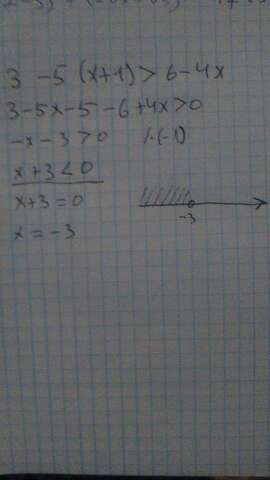 3 - 5 (x+1) > 6 - 4x
3 - 5x - 5 - 6 + 4x > 0
-x - 3 > 0 /·(-1)
x + 3 < 0
x + 3 = 0
x = -3
-3